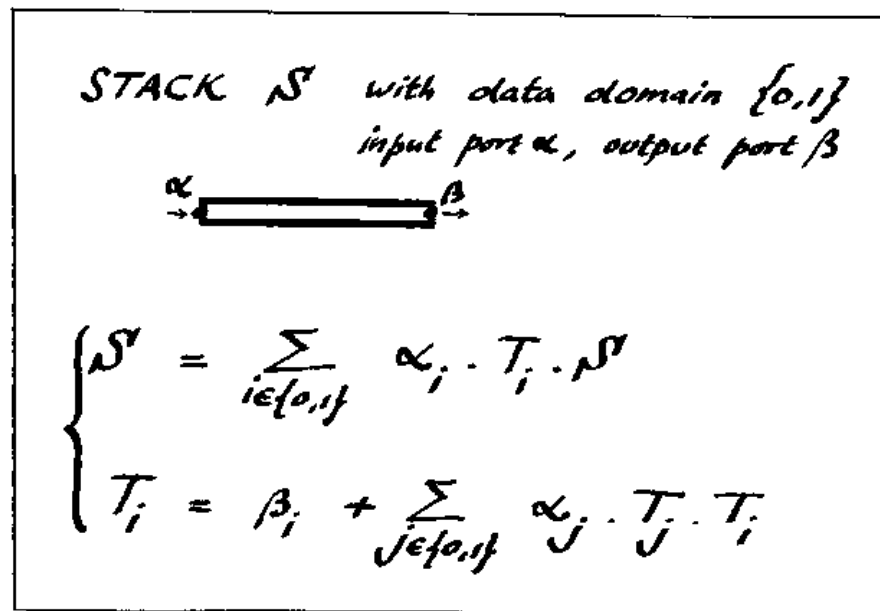 STACK S with data domain {0,1}
input port α, output port β
α β
S = Σ α_i · T_i · S
i∈{0,1}
T_i = β_i + Σ α_j · T_j · T_i
j∈{0,1}